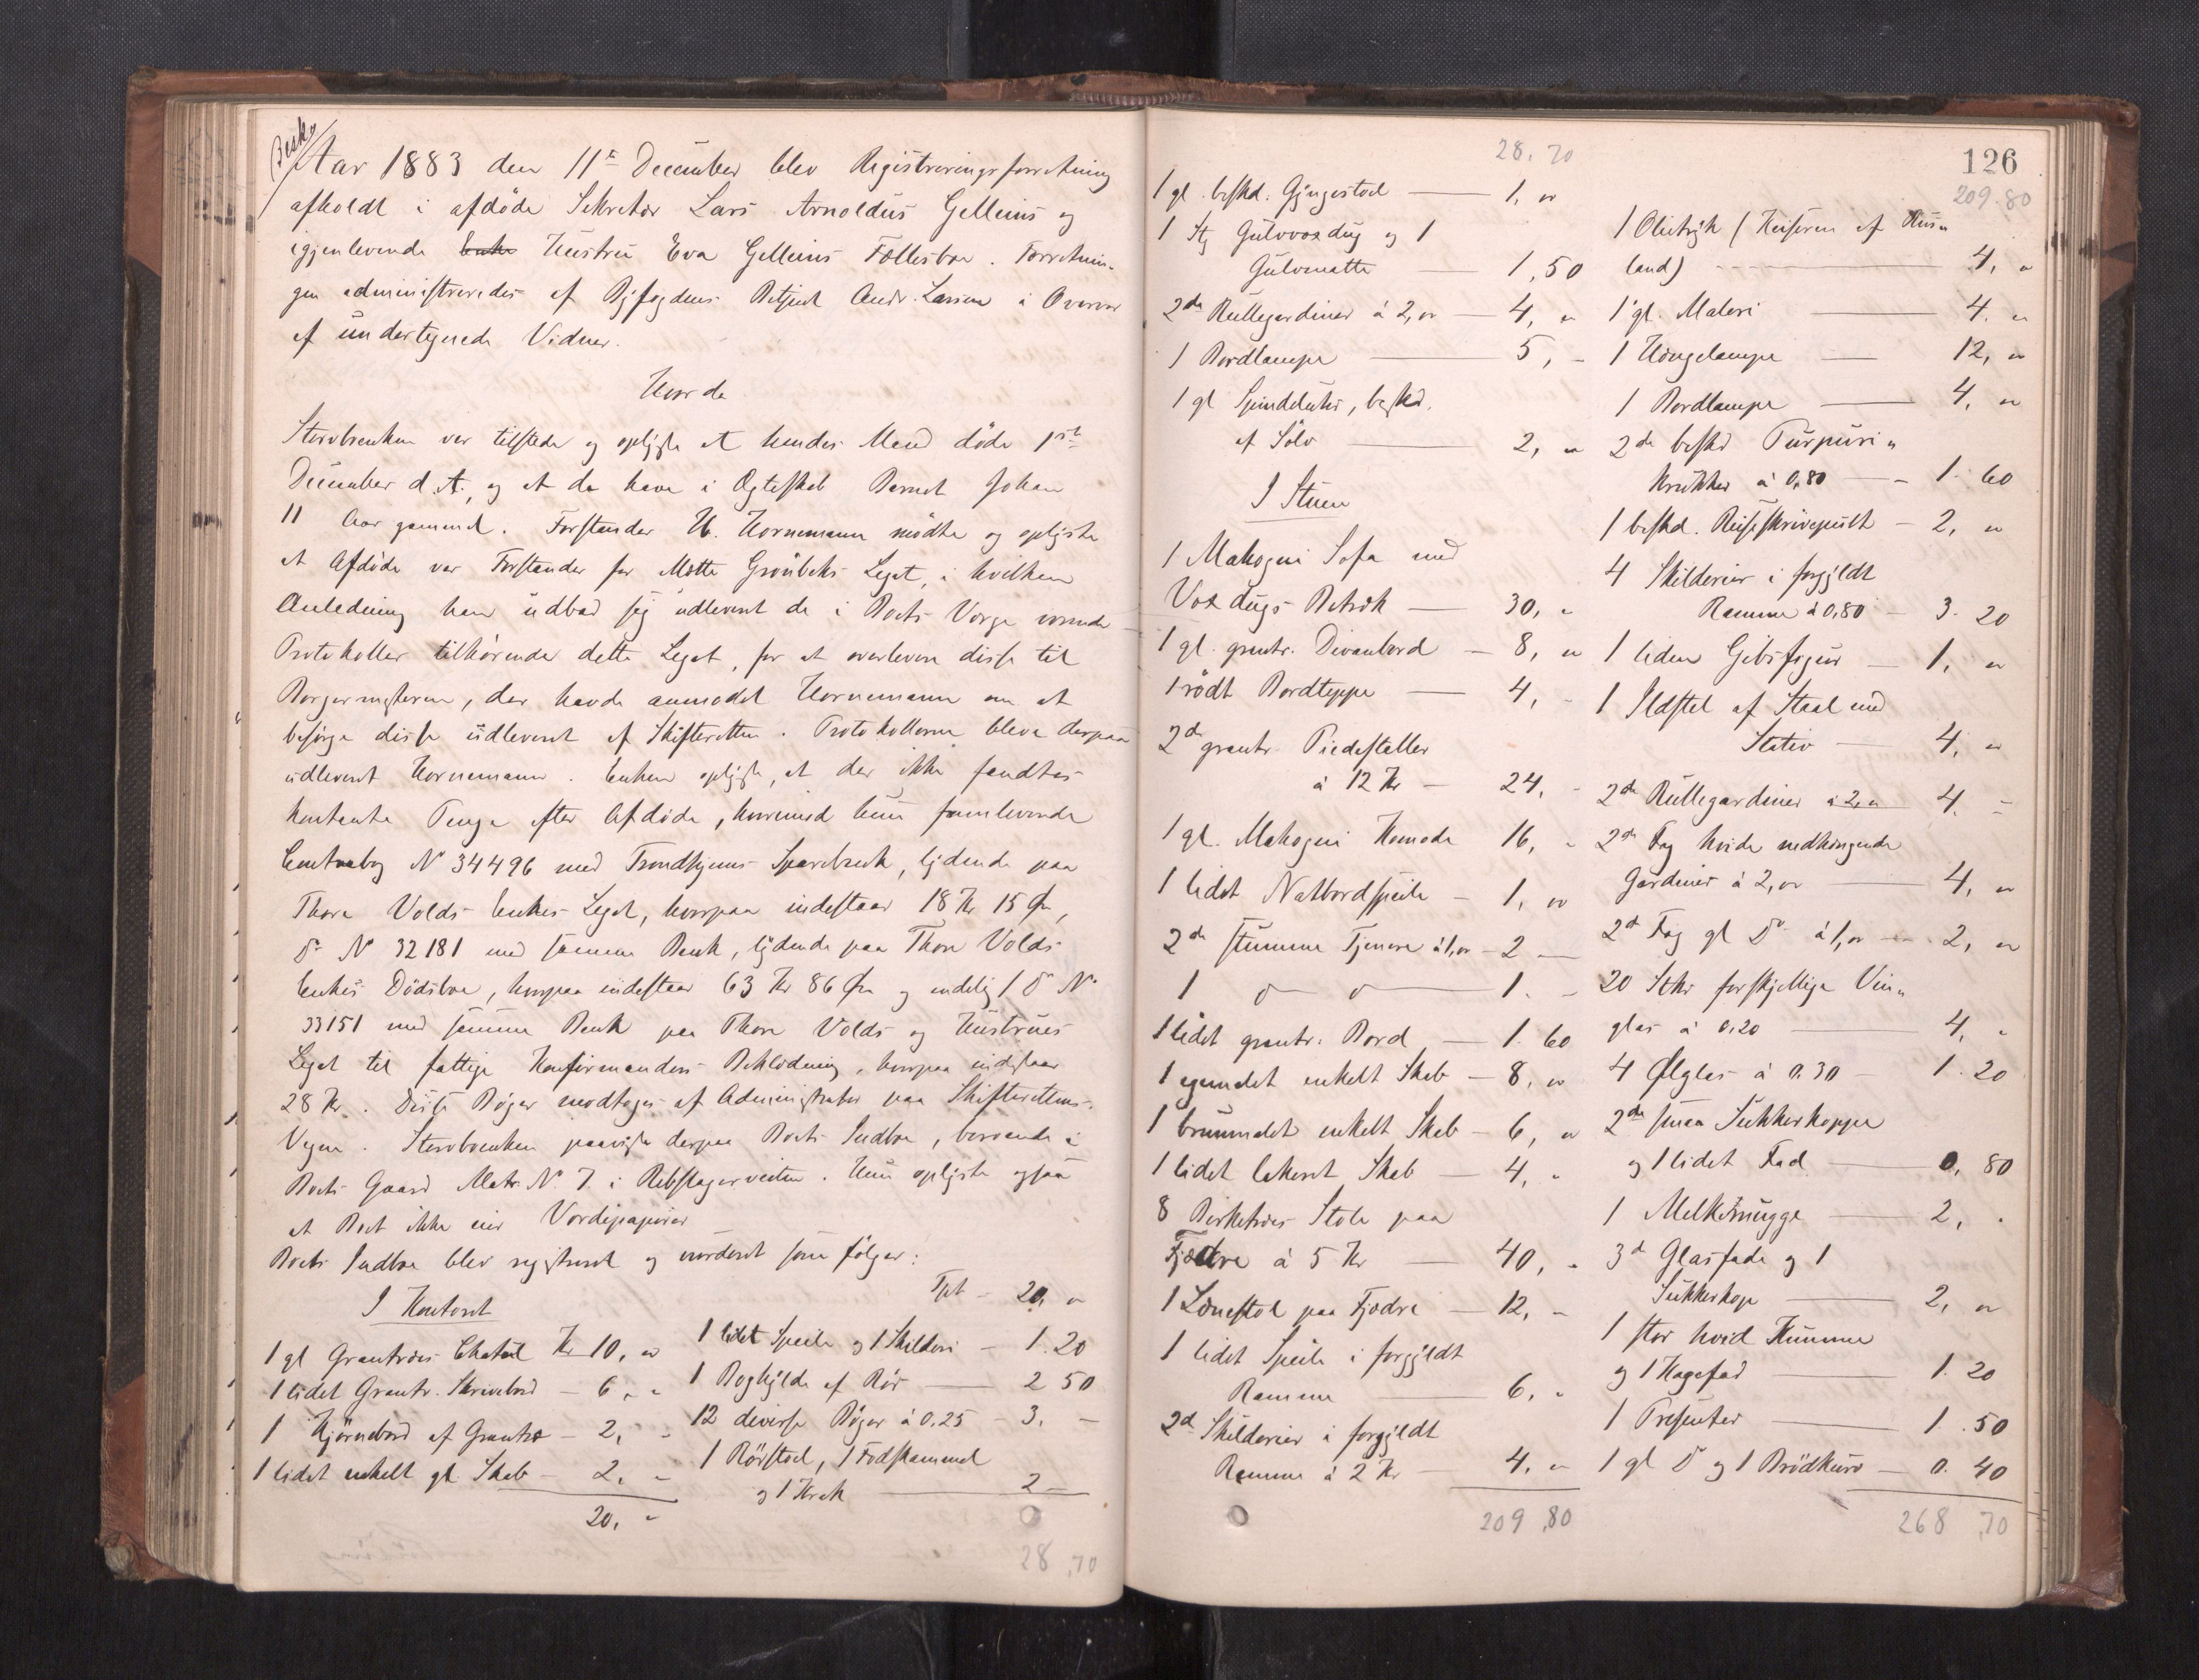 Besk.
Aar 1883 den 11te December blev Registreringsforretning
afholdt i afdöde Sekretær Lars Arnoldus Gellein's og
igjenlevende Enke Hustru Eva Gelleins Fællesboe. Forretnin-
gen administreredes af Byfogdens Betjent Andr. Larsen i Overvær
af undertegnede Vidner.
Hvorda
Stervboenken var tilstede og oplyste at hendes Mand döde 1ste
December d. A., og at de have i Ægteskab Barnet Johan
11 Aar gammel. Forstander H. Hornemann mödte og oplyste
at Afdöde var Forstander for Mette Grönbeks Legat, i hvilken
Anledning han udbad sig udleveret de i Boets Værge værende
Protokoller tilhörende dette Legat, for at overlevere disse til
Borgermesteren, der havde anmodet Hornemann om at
besörge disse udleveret af Skifteretten. Protokollerne bleve derpaa
udleveret Hornemann. Enken oplyste, at der ikke fandtes
kontante Penge efter Afdöde, hvorimod hun fremleverede
Contrabog No 34496 med Trondhjems Sparebank, lydende paa
Thore Volds Enkes Legat, hvorpaa indestaar 18 Kr 15 Öre,
do No 32181 med samme Bank, lydende paa Thore Volds
Enkes Dödsboe, hvorpaa indestaar 63 Kr 86 Öre og endelig 1 do No
33151 med samme Bank paa Thore Volds og Hustrues
Legat til fattige Konfirmanders Beklædning, hvorpaa indestaar
28 Kr. Disse Böger modtoges af Administrator paa Skifterettens
Vegne. Stervboenken paaviste derpaa Boets Indboe, beroende i
Boets Gaard Matr. No 7. i Rebslagerveiten. Hun oplyste ogsaa
at Boet ikke eier Værdipapirer
Boets Indboe blev registreret og vurderet som fölger:
I Kontoret
1 gl Grantræes Chatol Kr 10, "
1 lidet Grantr. Skrivebord - 6, "
1 Hjörnebord af Grantræ - 2, "
1 lidet enkelt gl. Skab - 2, "
20, "
Tpt - 20, "
1 lidet Speile og 1 Skilderi - 1. 20
1 Boghylde af Rör - 2 50
12 diverse Böger à 0.25 - 3. -
1 Rörstol, 1 Fodskammel
og 1 Krak - 2 -
28,70
28,70
1 gl. beskd. Gyngestol - 1, "
1 Stg Gulvvoxdug og 1
Gulvmatte - 1,50
2de Rullegardiner à 2, " - 4, "
1 Bordlampe - 5, -
1 gl Spindeluhr, beskd.
af Sölv - 2, "
I Stuen
1 Mahogni Sofa med
Voxdugs Betræk - 30, "
1 gl. grantr. Divanbord - 8, "
1 rödt Bordteppe - 4, -
2de grantr. Piedestaller
à 12 Kr - 24, -
1 gl. Mahogni Komode 16, -
1 lidet Natbordspeile - 1, "
2de stumme Tjenere à 1, " - 2 -
1 do do - 1. -
1 lidet grantr. Bord - 1. 60
1 egemalet enkelt Skab - 8, "
1 brunmalet enkelt Skab - 6, "
1 lidet lakeret Skab - 4, "
8 Birketræes Stole paa
Fjædre à 5 Kr - 40, "
1 Lænestol paa Fjædre - 12, -
1 lidet Speile i forgyldt
Ramme - 6, "
2de Skilderier i forgyldt
Ramme à 2 Kr - 4, "
209,80
126
209.80
1 Olietryk (Keiseren af Rus"
land) - 4, "
1 gl. Maleri - 4. "
1 Hængelampe - 12, "
1 Bordlampe - 4, "
2de beskd Purpuri"
krukker à 0,80 - 1. 60
1 beskd. Reiseskrivepult - 2, "
4 Skilderier i forgyldt
Ramme à 0,80 - 3. 20
1 liden Gibsfigur - 1, "
1 Ildstel af Staal med
Stativ - 4, "
2de Rullegardiner à 2, " 4. -
2de Fag hvide nedhængende
Gardiner à 2, " - 4, "
2de Fag gl Do à 1, " - 2, "
20 Stkr forskjellige Vin"
glas à 0.20 - 4, "
4 Ølglas à 0.30 - 1. 20
2de smaa Sukkerkopper
og 1 lidet Fad - 0, 80
1 Melkemugge - 2, "
3de Glasfade og 1
Sukkerkop - 2, "
1 stor hvid Kumme
og 1 Kagefad - 1. 20
1 Presenter - 1. 50
1 gl Do og 1 Brödkurv - 0. 40
268,70